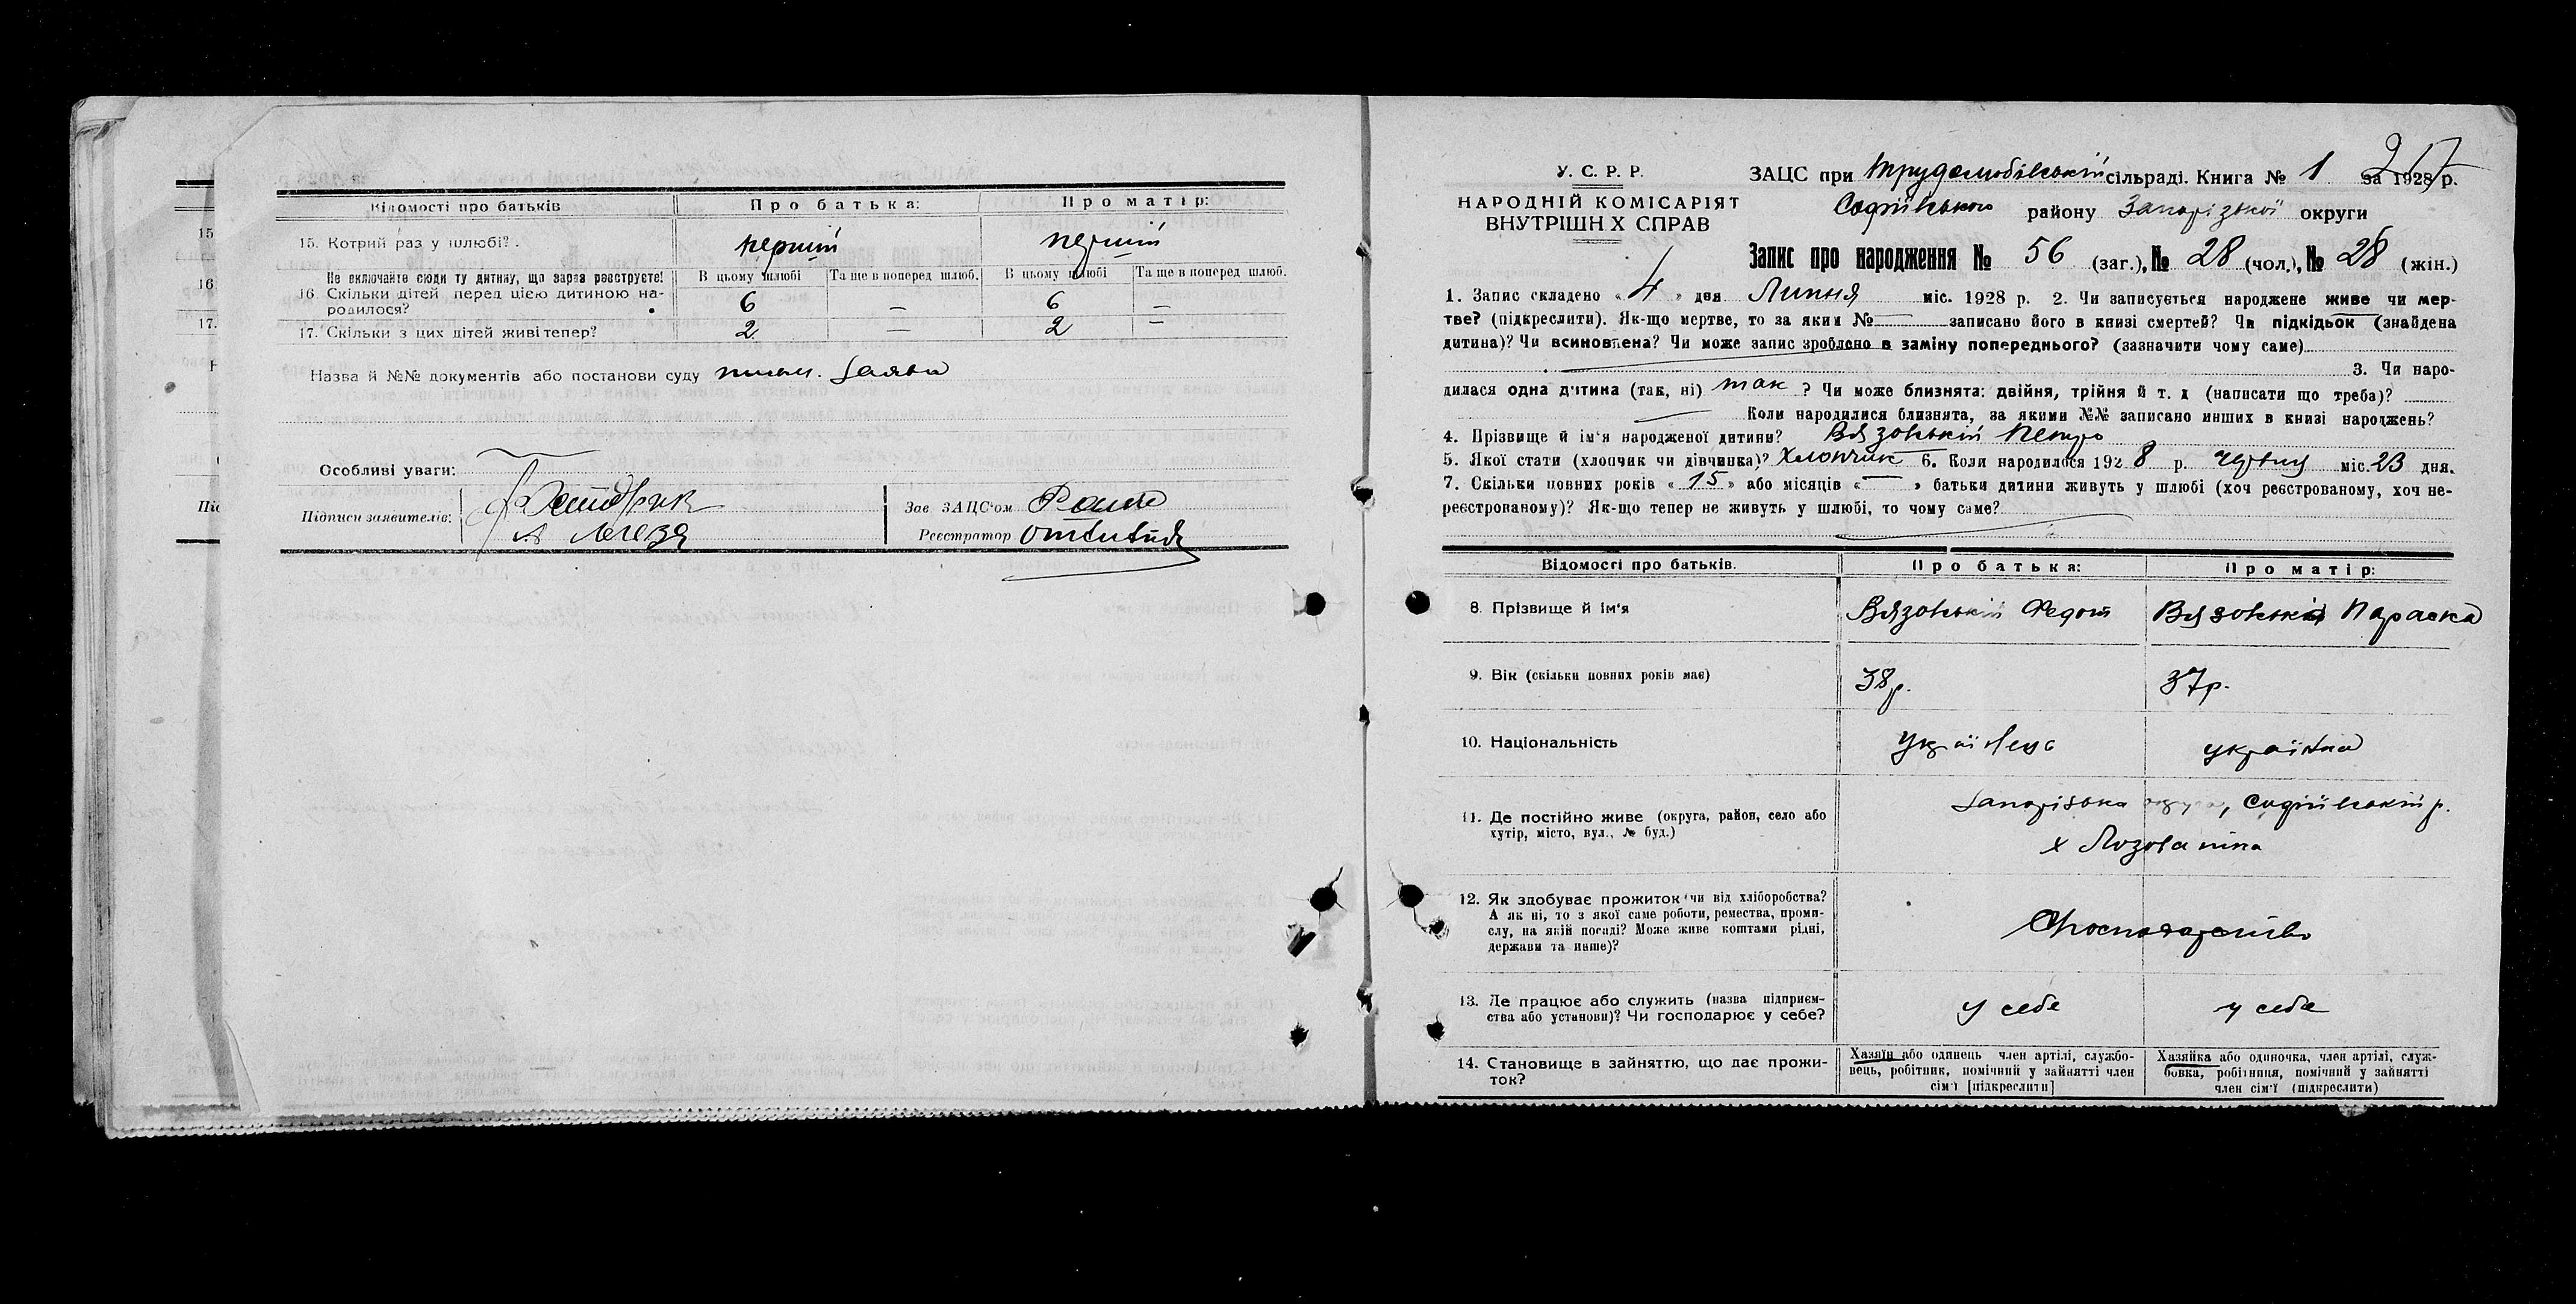 Відомості про батьків
Про батька:
Про матір:
15. Котрий раз у шлюбі?
перший
перший
Не включайте сюди ту дитину, що зараз реєструєте!
В цьому шлюбі
Та ще в поперед шлюб.
В цьому шлюбі
Та ще в поперед шлюб.
16. Скільки дітей перед цією дитиною на-
родилося?
6
—
6
—
17. Скільки з цих дітей живі тепер?
2
—
2
—
Назва й №№ документів або постанови суду письм. заява
Особливі уваги:
Підписи заявителів:
Зав ЗАЦС'ом
Реєстратор
15
16
17.
У. С. Р. Р.
НАРОДНІЙ КОМІСАРІЯТ
ВНУТРІШН Х СПРАВ
ЗАЦС при Трудолюбівській сільраді. Книга № 1 за 1928 р.
Софіївського району Запорізької округи
Запис про народження № 56 (заг.), № 28 (чол.), № 28 (жін.)
1. Запис складено « 4 » дня Липня міс. 1928 р. 2. Чи записується народжене живе чи мер-
тве? (підкреслити). Як-що мертве, то за яким № — записано його в книзі смертей? Чи підкідьок (знайдена
дитина)? Чи всиновлена? Чи може запис зроблено в заміну попереднього? (зазначити чому саме)
3. Чи наро-
дилася одна дитина (так, ні) так ? Чи може близнята: двійня, трійня й т. д (написати що треба)?
Коли народилися близнята, за якими №№ записано инших в книзі народжень?
4. Прізвище й ім'я народженої дитини? Вязовській Петро
5. Якої стати (хлопчик чи дівчинка)? Хлопчик 6. Коли народилося 1928 р. червня міс. 23 дня.
7. Скільки повних років « 15 » або місяців « — » батьки дитини живуть у шлюбі (хоч реєстрованому, хоч не-
реєстрованому)? Як-що тепер не живуть у шлюбі, то чому саме?
Відомості про батьків.
Про батька:
Про матір:
8. Прізвище й ім'я
Вязовській Федот
Вязовська Параска
9. Вік (скільки повних років має)
38 р.
37 р.
10. Національність
українець
українка
11. Де постійно живе (округа, район, село або
хутір, місто, вул., № буд.)
Запорізька округа, Софіївській р.
х Лозоватка
12. Як здобуває прожиток чи від хліборобства?
А як ні, то з якої саме роботи, ремества, проми-
слу, на якій посаді? Може живе коштами рідні,
держави та инше)?
13. Де працює або служить (назва підприєм-
ства або установи)? Чи господарює у себе?
у себе
у себе
14. Становище в зайняттю, що дає прожи-
ток?
Хазяїн або одинець член артілі, службо-
вець, робітник, помічний у зайнятті член
сім'ї [підкреслити]
Хазяйка або одиночка, член артілі, служ-
бовка, робітниця, помічний у зайнятті
член сім'ї (підкреслити)